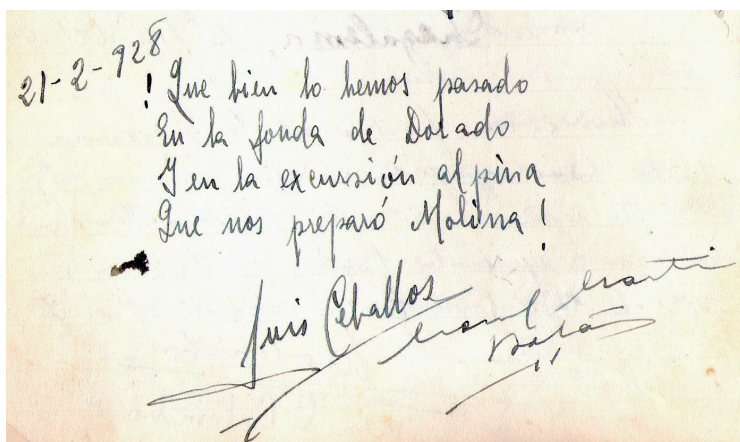 21-2-928
! Que bien lo hemos pasado
En la fonda de Dorado
Y en la excursión alpina
Que nos preparó Molina !
Luis Ceballos
Martí